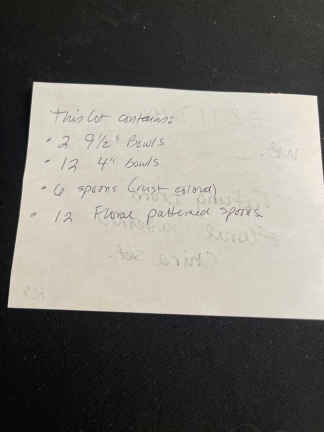 This lot contains:
• 2 9 1/2" Bowls
• 12 4" bowls
• 6 spoons (rust colored)
• 12 Floral patterned spoons
China set